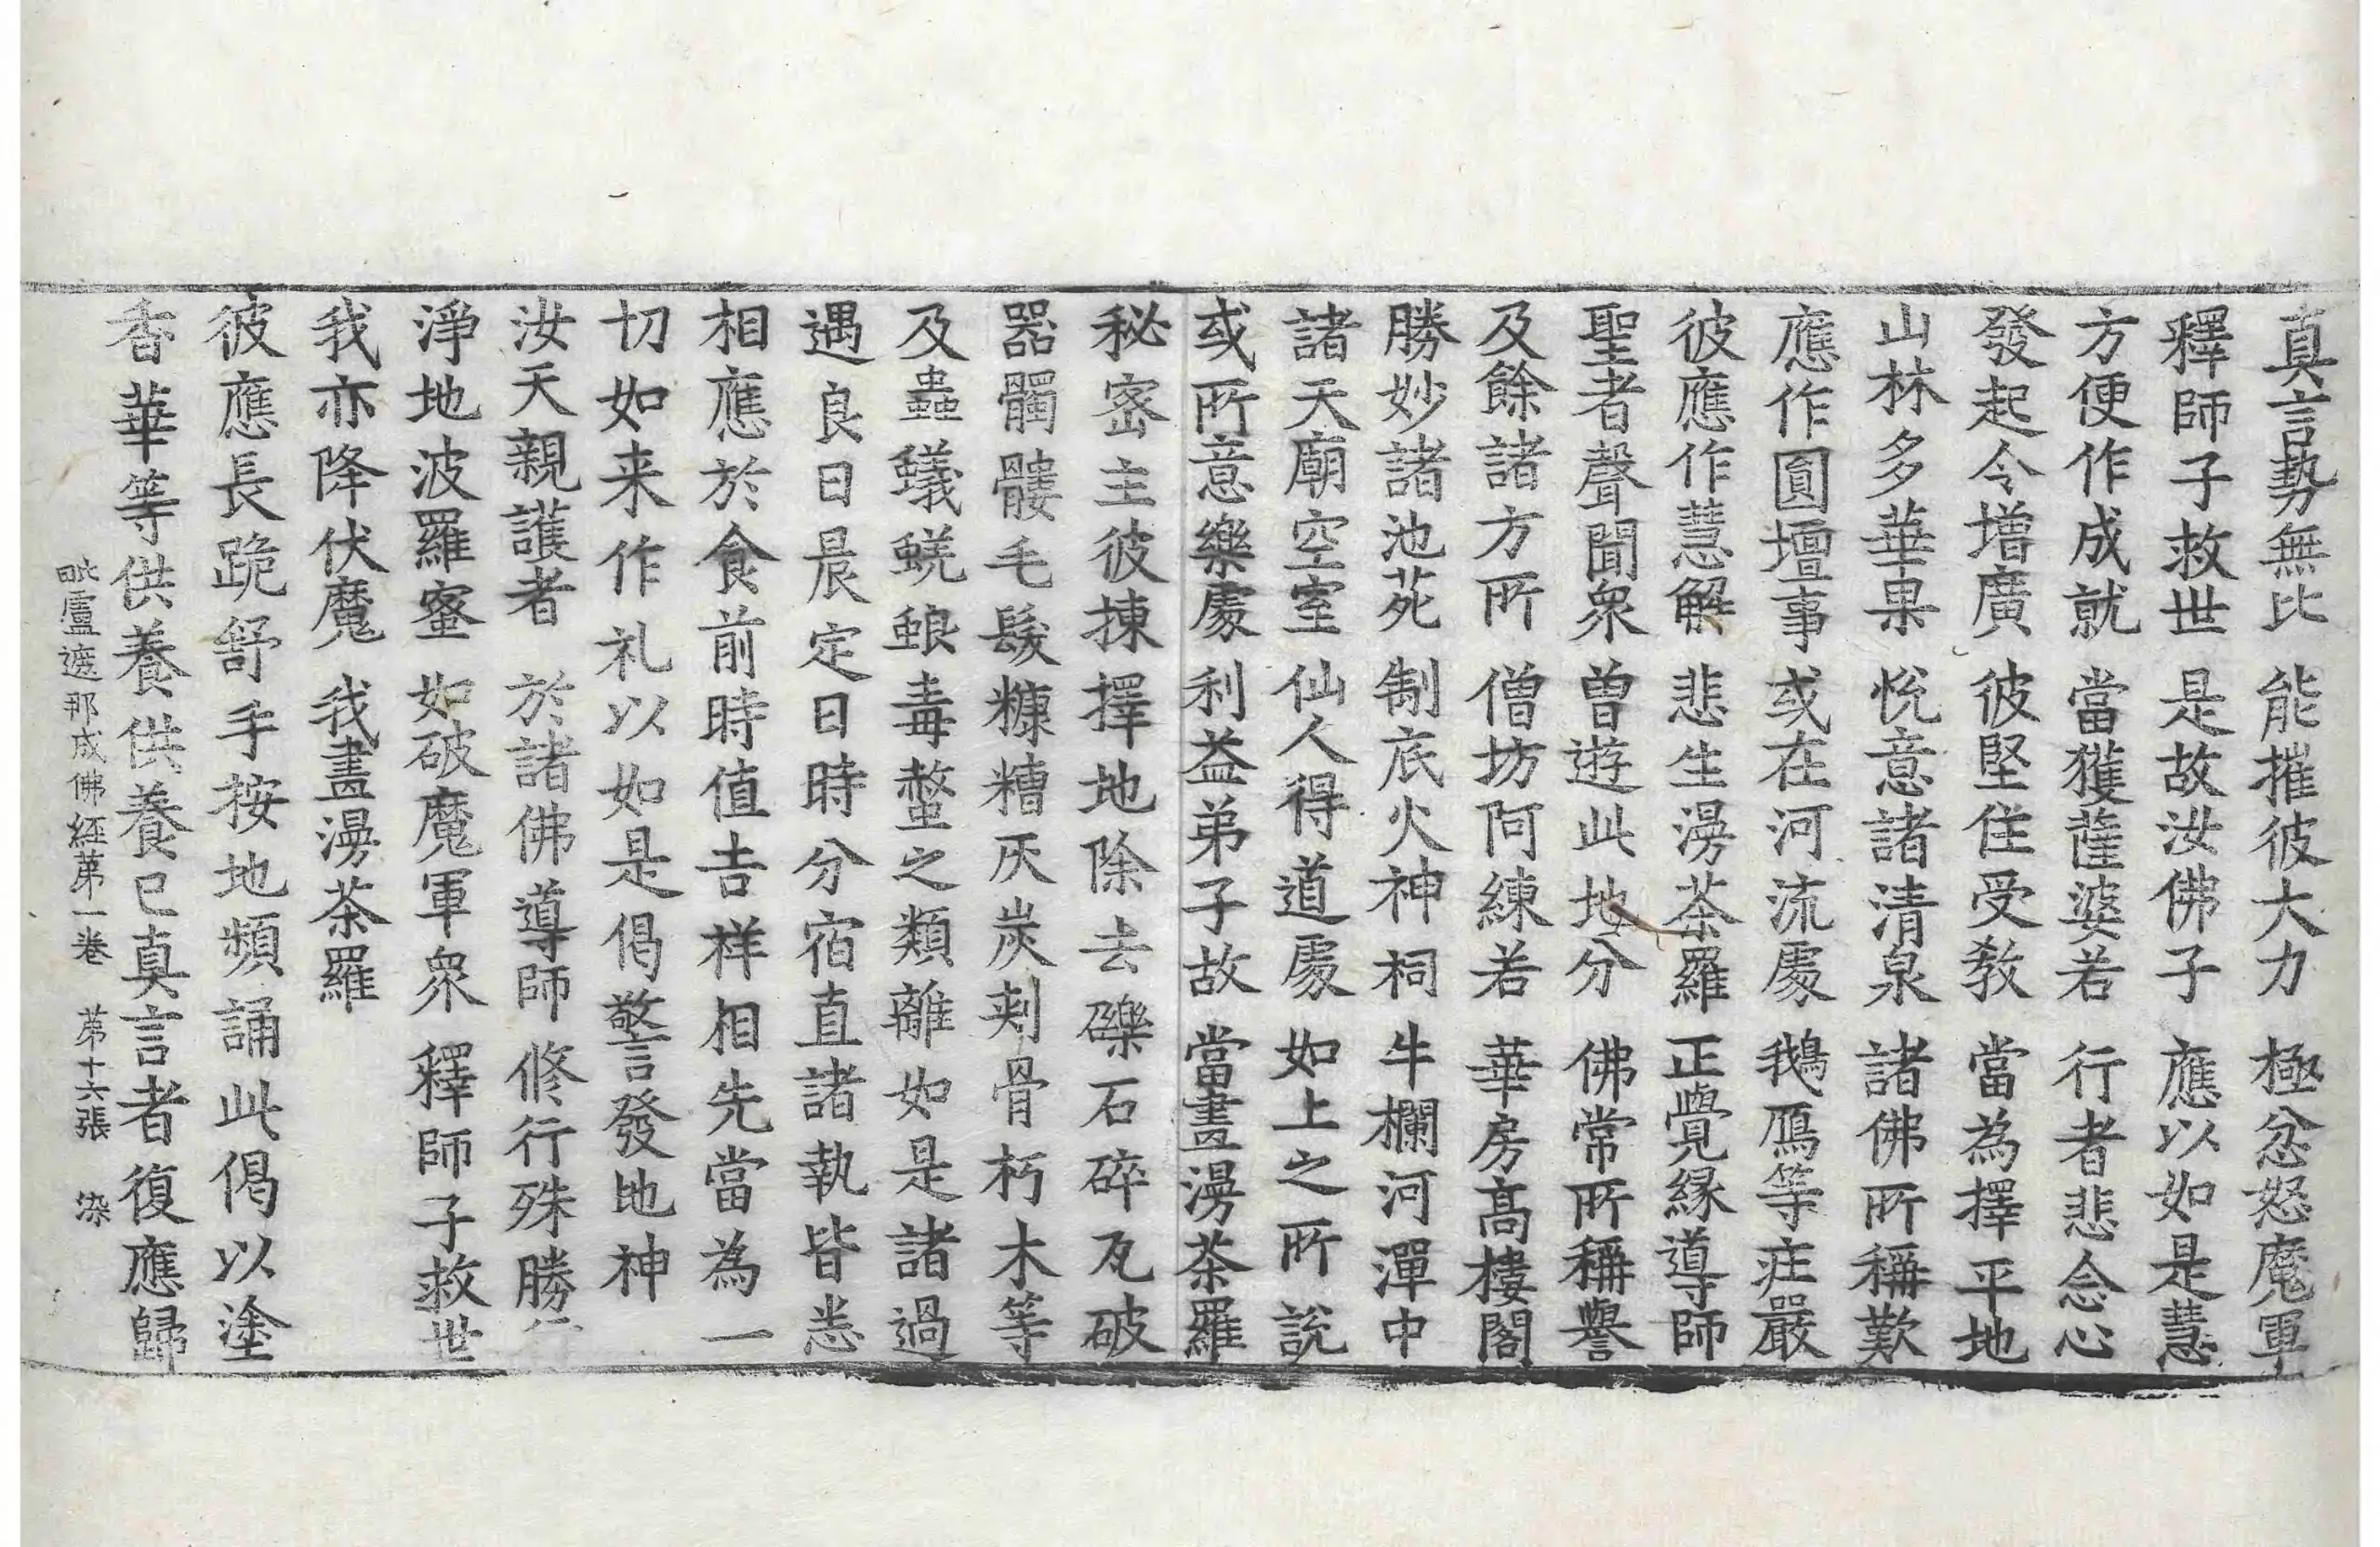 真言勢無比 能摧彼大力 極忿怒魔軍
釋師子救世 是故汝佛子 應以如是慧
方便作成就 當獲薩婆若 行者悲念心
發起令增廣 彼堅住受教 當為擇平地
山林多華果 悅意諸清泉 諸佛所稱歎
應作圓壇事 或在河流處 鵝鴈等莊嚴
彼應作慧解 悲生漫荼羅 正覺緣導師
聖者聲聞眾 曾遊此地分 佛常所稱譽
及餘諸方所 僧坊阿練若 華房高樓閣
勝妙諸池苑 制底火神祠 牛欄河潬中
諸天廟空室 仙人得道處 如上之所說
或所意樂處 利益弟子故 當畫漫荼羅
秘密主彼揀擇地除去礫石碎瓦破
器髑髏毛髮糠糟灰炭刺骨朽木等
及蟲蟻蜣蜋毒螫之類離如是諸過
遇良日晨定日時分宿直諸執皆悉
相應於食前時值吉祥相先當為一
切如来作礼以如是偈警發地神
汝天親護者 於諸佛導師 修行殊勝
淨地波羅蜜 如破魔軍眾 釋師子救世
我亦降伏魔 我畫漫荼羅
彼應長跪舒手按地頻誦此偈以塗
香華等供養供養已真言者復應歸
毗盧遮那成佛經第一卷 第十六張 染